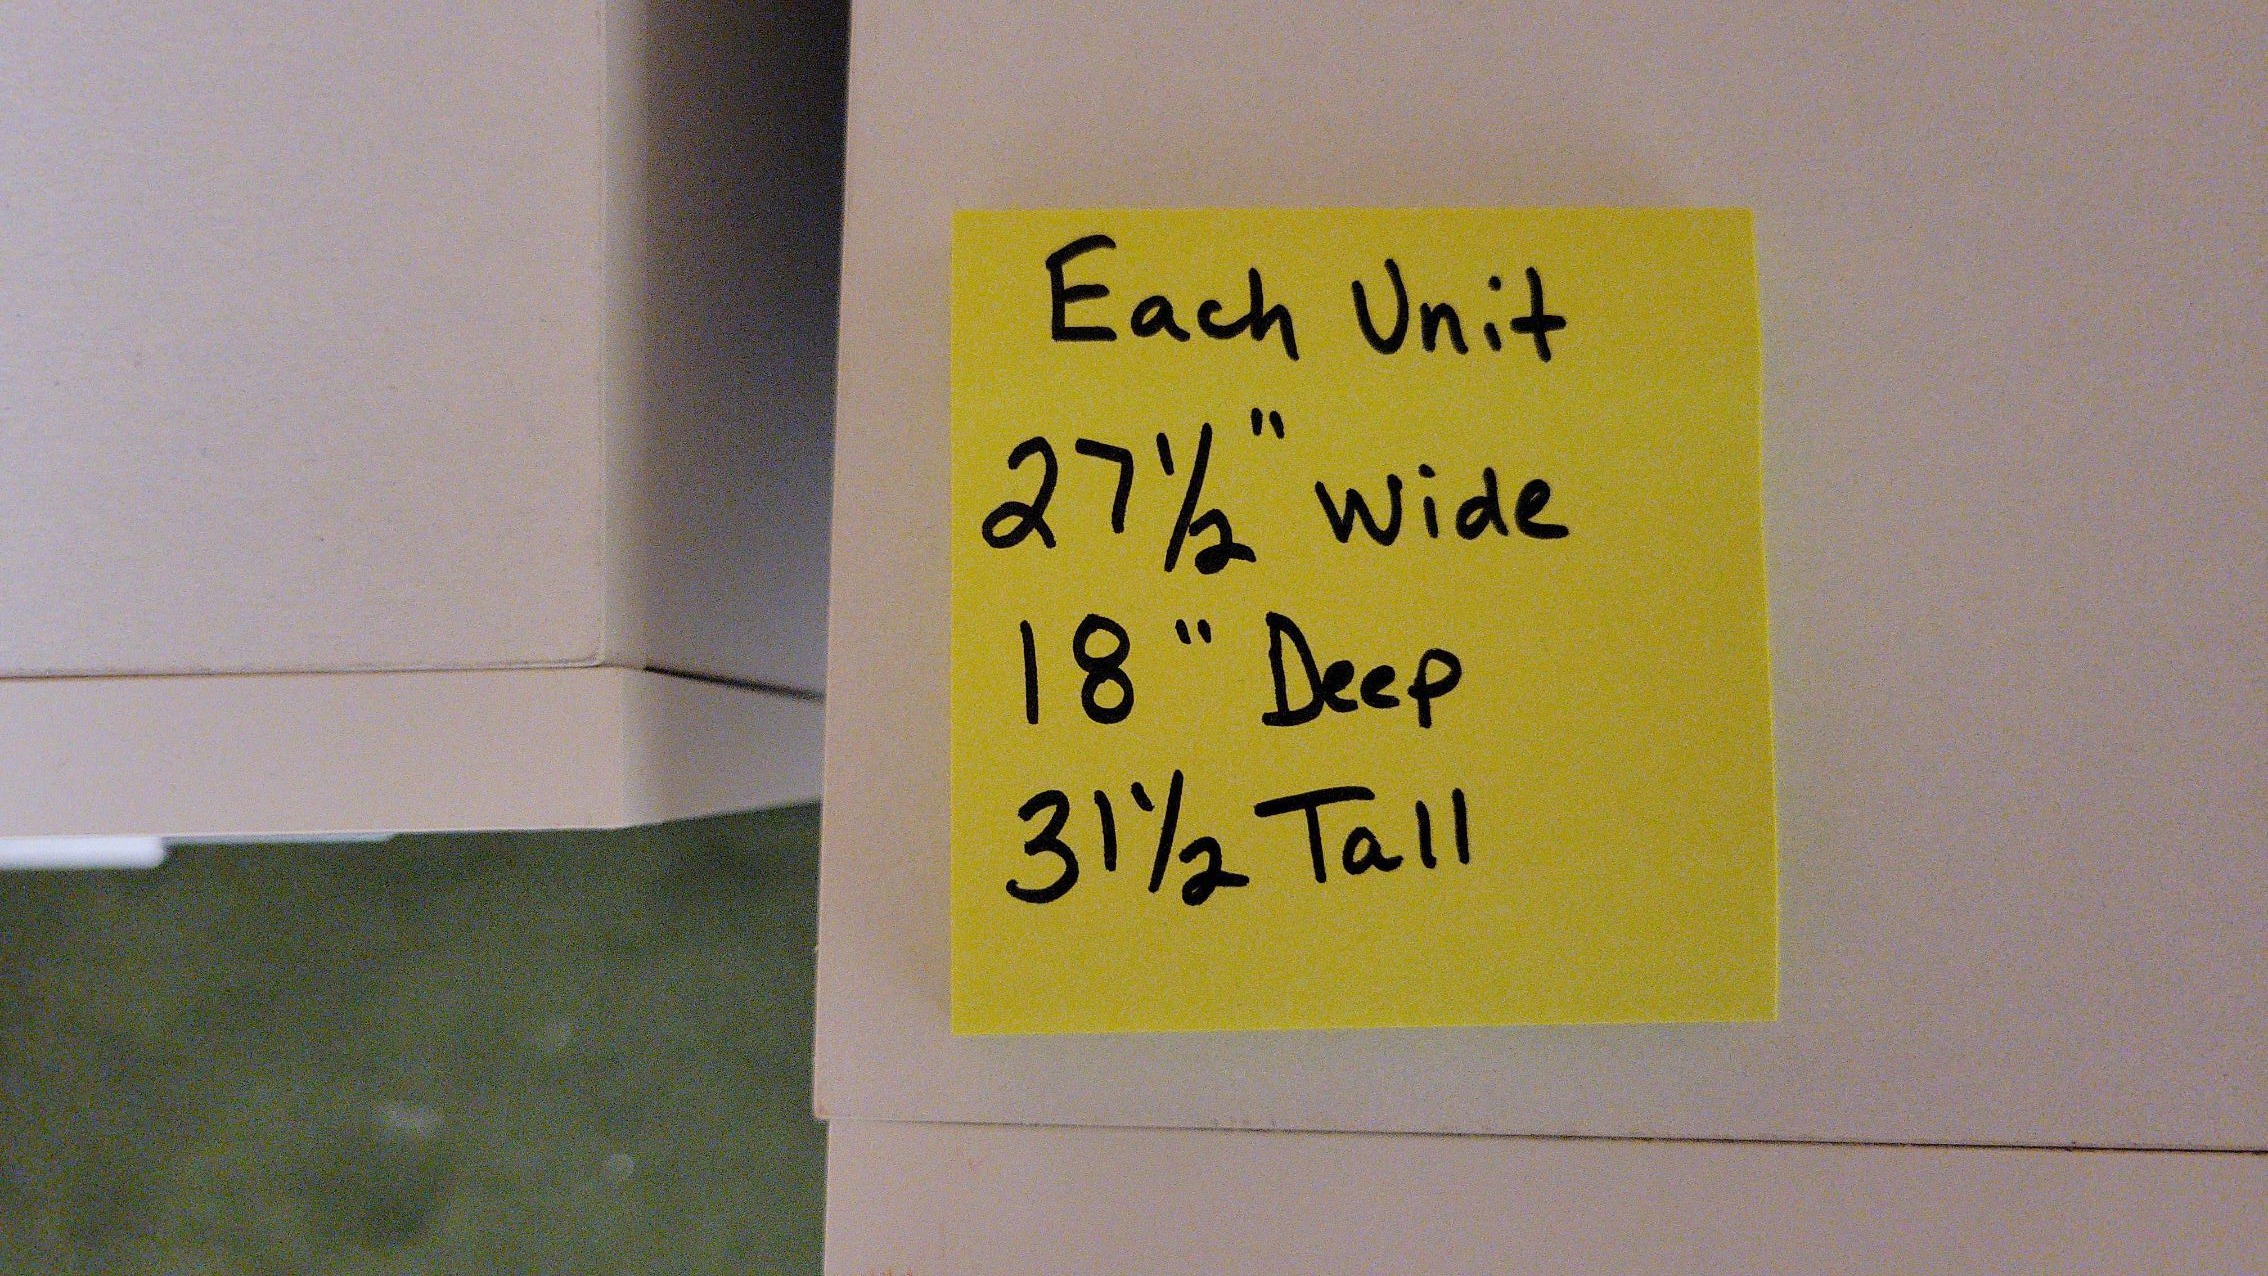 Each Unit
27 1/2" Wide
18" Deep
31 1/2 Tall